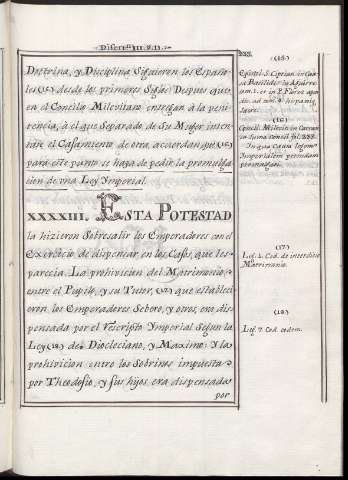 Disert.ⁿ III. §. II.
233.
Doctrina, y Disciplina Siguieron los Españo-
les (15) desde los primeros Siglos: Despues que
en el Concilio Milevitano entregan à la peni-
tencia, à el que Separado de Su Muger inten-
táre el Casamiento de otra, acordaron que (16)
para este punto se haya de pedir la promulga-
cion de una Ley Ymperial.
XXXXIII. ESTA POTESTAD
la hizieron Sobresalir los Emperadores con el
Exercicio de dispensar en los Casos, que les
parecia. La prohivicion del Matrimonio
entre el Pupilo, y su Tutor, (17) que estableci-
eron los Emperadores Sebero, y otros, era dis-
pensada por el Rescripto Ymperial Segun la
Ley (18) de Diocleciano, y Maximo: Y la
prohivicion entre los Sobrinos impuesta
por Theodosio, y sus hijos era dispensadas
por
(15)
Epistol. S. Ciprian. in Cau-
sa Basilidis
(16)
Concil. Milevit. in
In qua Causa legem
Imperialem petendam
promulgari.
(17)
Leg. 1. Cod. de interdicto
Matrimonio.
(18)
Leg. 7. Cod. eodem.